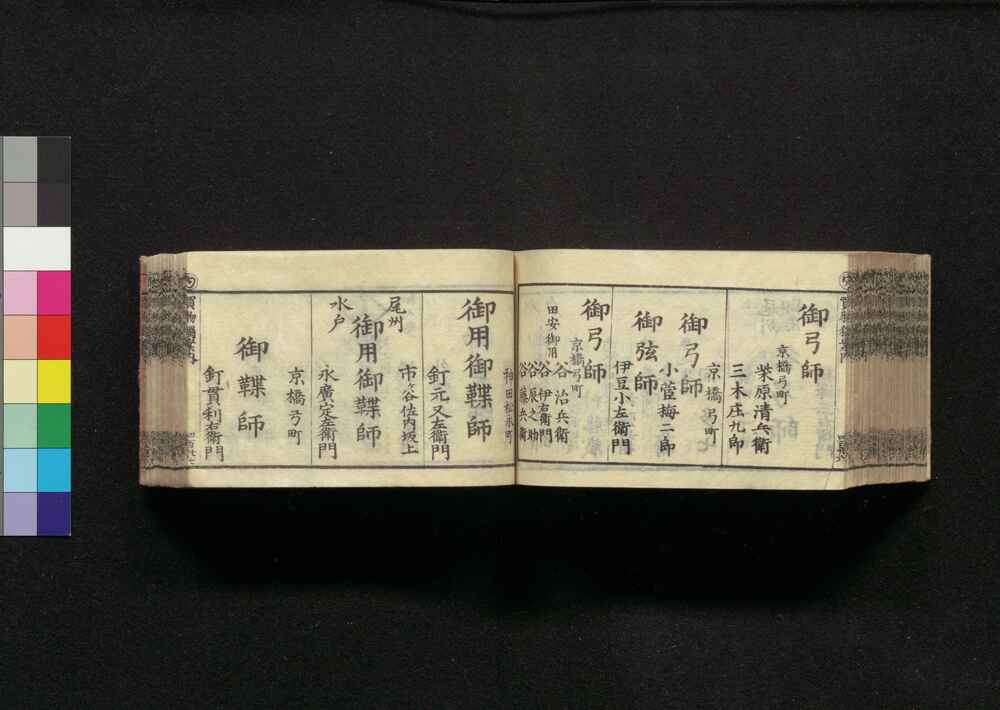 御弓師
京橋弓町
柴原清兵衛
三木庄九郎
御弓師
京橋弓町
小菅梅二郎
御弦師
伊豆小左衛門
御弓師
京橋弓町
田安御用
谷治兵衛
谷伊右衛門
谷辰之助
谷藤兵衛
御用御鞢師
神田松永町
釘元又左衛門
尾州
水戸
御用御鞢師
市ヶ谷佐内坂上
永廣定左衛門
御鞢師
京橋弓町
釘貫利右衛門